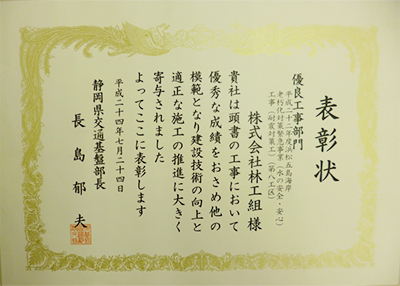 表彰状
優良工事部門
平成二十三年度浜松五島海岸
老朽化対策緊急事業（水の安全・安心）
工事（耐震対策工）（第八工区）
株式会社林工組 様
貴社は頭書の工事において
優秀な成績をおさめ他の
模範となり建設技術の向上と
適正な施工の推進に大きく
寄与されました
よってここに表彰します
平成二十四年七月二十四日
静岡県交通基盤部長
長島郁夫